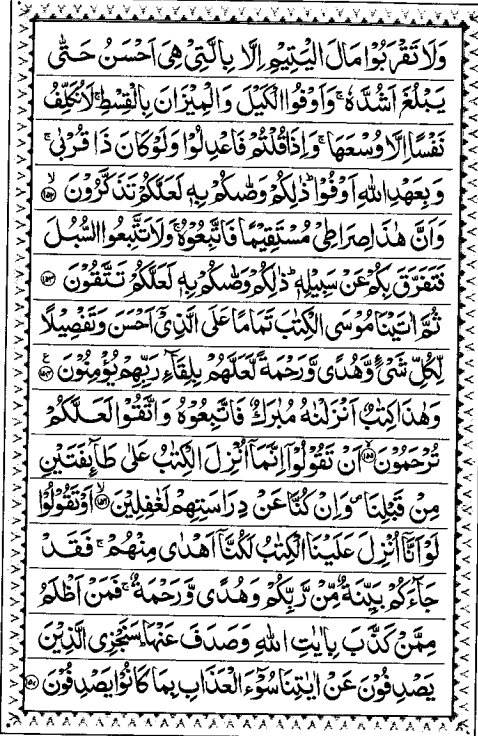 وَلَا تَقْرَبُوْا مَالَ الْيَتِيْمِ اِلَّا بِالَّتِيْ هِيَ اَحْسَنُ حَتّٰى
يَبْلُغَ اَشُدَّهٗ ۚ وَاَوْفُوا الْكَيْلَ وَالْمِيْزَانَ بِالْقِسْطِ ۚ لَا نُكَلِّفُ
نَفْسًا اِلَّا وُسْعَهَا ۚ وَاِذَا قُلْتُمْ فَاعْدِلُوْا وَلَوْ كَانَ ذَا قُرْبٰى ۚ
وَبِعَهْدِ اللّٰهِ اَوْفُوْا ؕ ذٰلِكُمْ وَصّٰىكُمْ بِهٖ لَعَلَّكُمْ تَذَكَّرُوْنَ ۙ ﴿۱۵۲﴾
وَاَنَّ هٰذَا صِرَاطِيْ مُسْتَقِيْمًا فَاتَّبِعُوْهُ ۚ وَلَا تَتَّبِعُوا السُّبُلَ
فَتَفَرَّقَ بِكُمْ عَنْ سَبِيْلِهٖ ؕ ذٰلِكُمْ وَصّٰىكُمْ بِهٖ لَعَلَّكُمْ تَتَّقُوْنَ ﴿۱۵۳﴾
ثُمَّ اٰتَيْنَا مُوْسَى الْكِتٰبَ تَمَامًا عَلَى الَّذِيْٓ اَحْسَنَ وَتَفْصِيْلًا
لِّكُلِّ شَيْءٍ وَّهُدًى وَّرَحْمَةً لَّعَلَّهُمْ بِلِقَآءِ رَبِّهِمْ يُؤْمِنُوْنَ ﴿۱۵۴﴾ ع
وَهٰذَا كِتٰبٌ اَنْزَلْنٰهُ مُبٰرَكٌ فَاتَّبِعُوْهُ وَاتَّقُوْا لَعَلَّكُمْ
تُرْحَمُوْنَ ۙ ﴿۱۵۵﴾ اَنْ تَقُوْلُوْٓا اِنَّمَآ اُنْزِلَ الْكِتٰبُ عَلٰى طَآئِفَتَيْنِ
مِنْ قَبْلِنَا ۪ وَاِنْ كُنَّا عَنْ دِرَاسَتِهِمْ لَغٰفِلِيْنَ ۙ ﴿۱۵۶﴾ اَوْ تَقُوْلُوْا
لَوْ اَنَّآ اُنْزِلَ عَلَيْنَا الْكِتٰبُ لَكُنَّآ اَهْدٰى مِنْهُمْ ۚ فَقَدْ
جَآءَكُمْ بَيِّنَةٌ مِّنْ رَّبِّكُمْ وَهُدًى وَّرَحْمَةٌ ۚ فَمَنْ اَظْلَمُ
مِمَّنْ كَذَّبَ بِاٰيٰتِ اللّٰهِ وَصَدَفَ عَنْهَا ؕ سَنَجْزِي الَّذِيْنَ
يَصْدِفُوْنَ عَنْ اٰيٰتِنَا سُوْٓءَ الْعَذَابِ بِمَا كَانُوْا يَصْدِفُوْنَ ﴿۱۵۷﴾